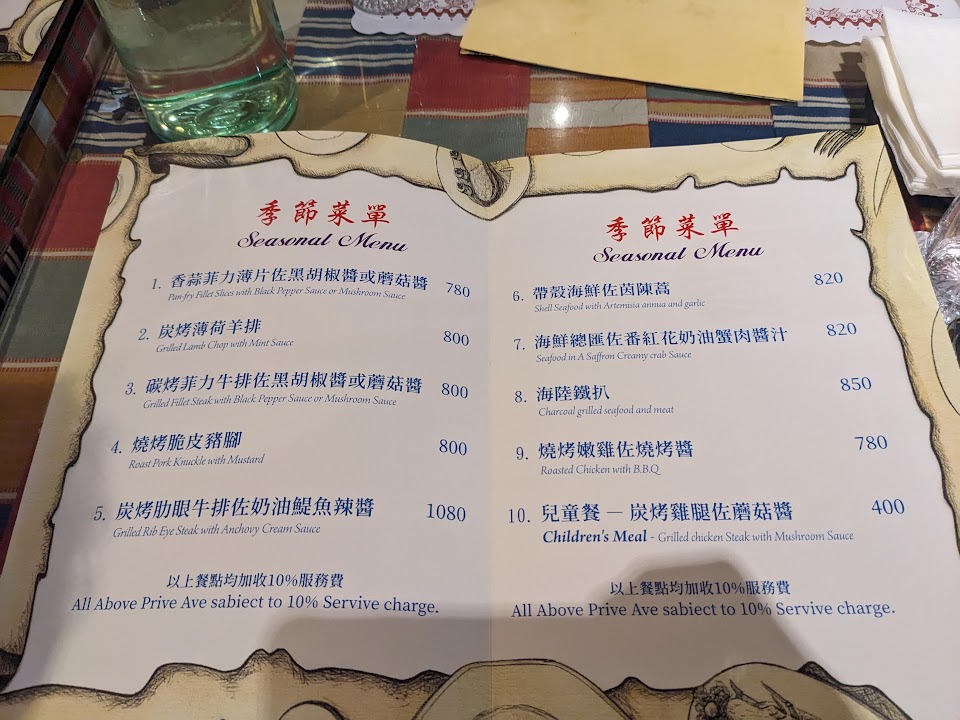 季節菜單
Seasonal Menu
1. 香蒜菲力薄片佐黑胡椒醬或蘑菇醬 780
Pan-fry Fillet Slices with Black Pepper Sauce or Mushroom Sauce
2. 炭烤薄荷羊排 800
Grilled Lamb Chop with Mint Sauce
3. 碳烤菲力牛排佐黑胡椒醬或蘑菇醬 800
Grilled Fillet Steak with Black Pepper Sauce or Mushroom Sauce
4. 燒烤脆皮豬腳 800
Roast Pork Knuckle with Mustard
5. 炭烤肋眼牛排佐奶油鯷魚辣醬 1080
Grilled Rib Eye Steak with Anchovy Cream Sauce
以上餐點均加收10%服務費
All Above Prive Ave sabiect to 10% Servive charge.
季節菜單
Seasonal Menu
6. 帶殼海鮮佐茵陳蒿 820
Shell Seafood with Artemisia annua and garlic
7. 海鮮總匯佐番紅花奶油蟹肉醬汁 820
Seafood in A Saffron Creamy crab Sauce
8. 海陸鐵扒 850
Charcoal grilled seafood and meat
9. 燒烤嫩雞佐燒烤醬 780
Roasted Chicken with B.B.Q
10. 兒童餐 — 炭烤雞腿佐蘑菇醬 400
Children's Meal - Grilled chicken Steak with Mushroom Sauce
以上餐點均加收10%服務費
All Above Prive Ave sabiect to 10% Servive charge.